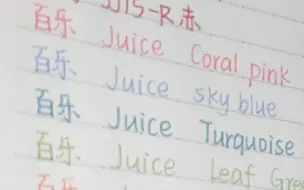 JJ15-R.赤
百乐 Juice Coral pink
百乐 Juice sky blue
百乐 Juice Turquoise
百乐 Juice Leaf Gre
百乐